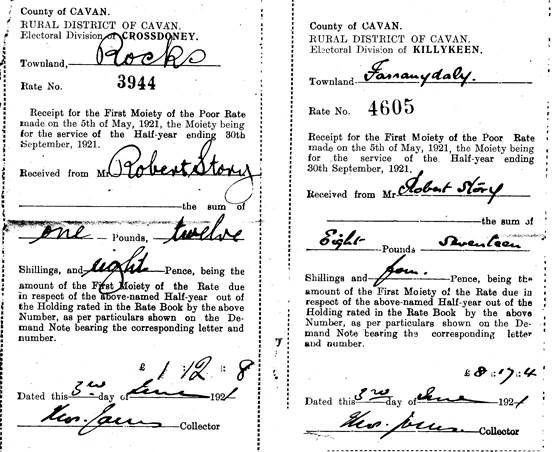 County of CAVAN.
RURAL DISTRICT OF CAVAN.
Electoral Division of CROSSDONEY.
Townland, Rocks
Rate No. 3944
Receipt for the First Moiety of the Poor Rate
made on the 5th of May, 1921, the Moiety being
for the service of the Half-year ending 30th
September, 1921.
Received from Mr Robert Story
the sum of
one Pounds, twelve
Shillings, and eight Pence, being the
amount of the First Moiety of the Rate due
in respect of the above-named Half-year out of
the Holding rated in the Rate Book by the above
Number, as per particulars shown on the De-
mand Note bearing the corresponding letter and
number.
£ 1 : 12 : 8
Dated this 3rd day of June 1921
Thos. Collector
County of CAVAN.
RURAL DISTRICT OF CAVAN.
Electoral Division of KILLYKEEN.
Townland, Farranydaly.
Rate No. 4605
Receipt for the First Moiety of the Poor Rate
made on the 5th of May, 1921, the Moiety being
for the service of the Half-year ending
30th September, 1921.
Received from Mr Robert Story
the sum of
Eight Pounds Seventeen
Shillings and four. Pence, being the
amount of the First Moiety of the Rate due in
respect of the above-named Half-year out of the
Holding rated in the Rate Book by the above
Number, as per particulars shown on the De-
mand Note bearing the corresponding letter
and number.
£ 8 : 17 : 4
Dated this 3rd day of June 1921
Thos. Collector